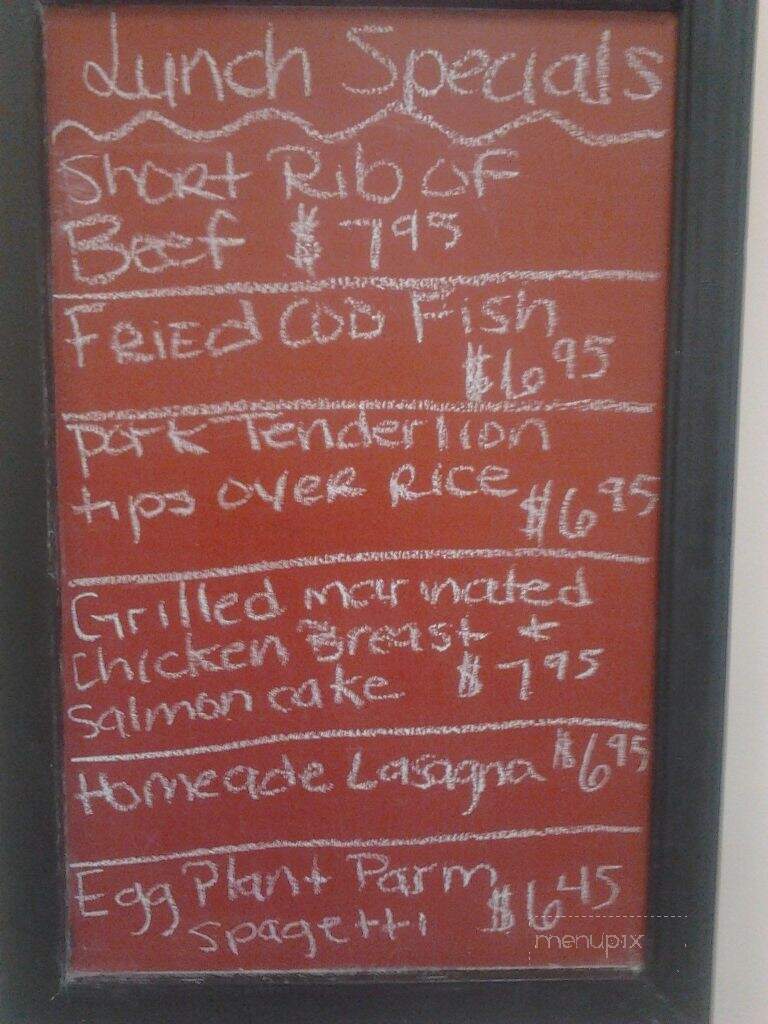 Lunch Specials
Short Rib of
Beef $7.95
Fried Cod Fish
$6.95
Pork Tenderlion
tips over Rice $6.95
Grilled marinated
Chicken Breast +
Salmon cake $7.95
Homeade Lasagna $6.95
Egg Plant Parm
Spagetti $6.45
menupix